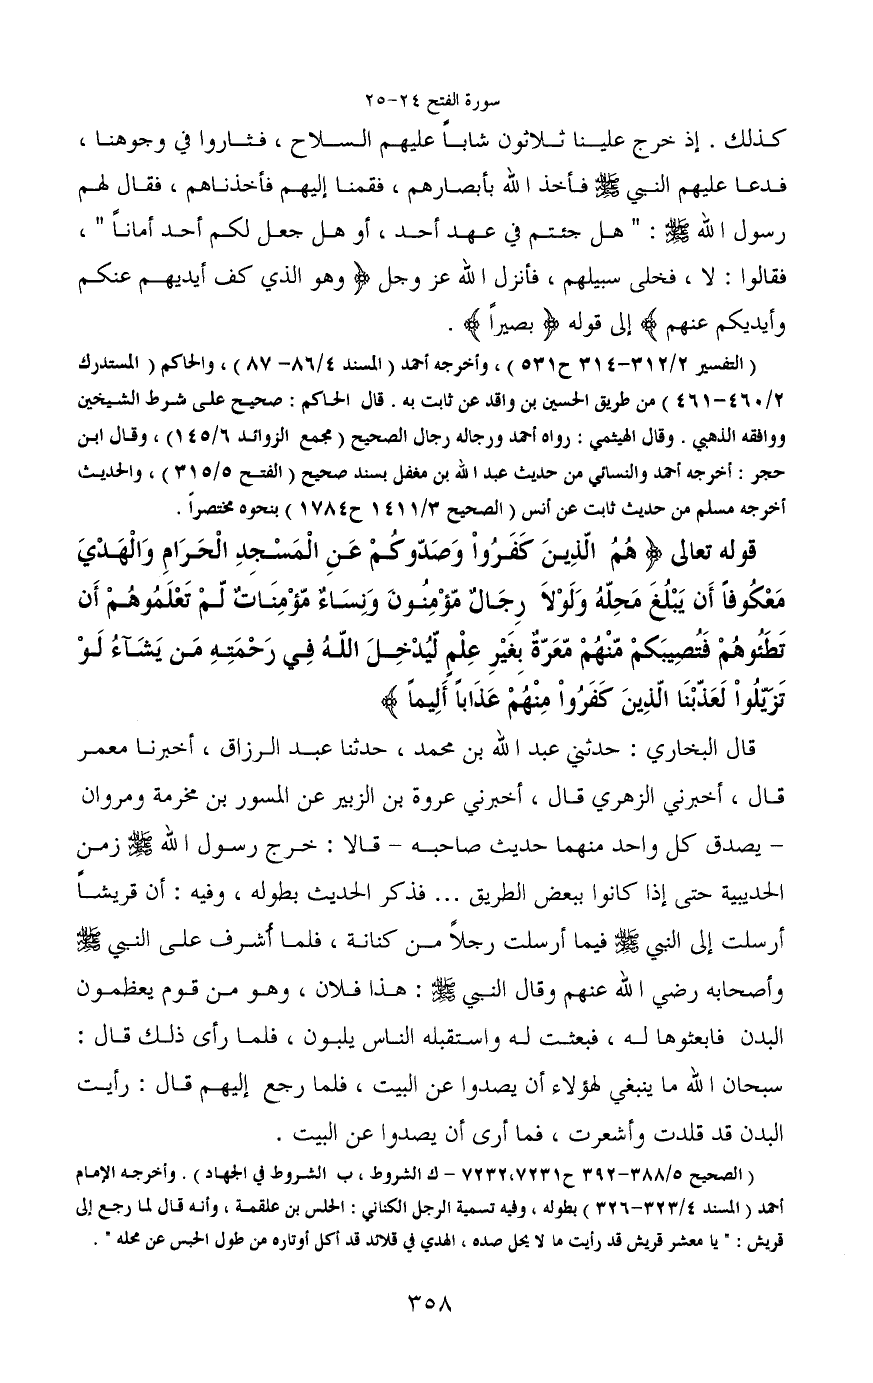 سورة الفتح ٢٤-٢٥
كذلك . إذ خرج علينا ثلاثون شاباً عليهم السلاح ، فثاروا في وجوهنا ،
فدعا عليهم النبي ﷺ فأخذ الله بأبصارهم ، فقمنا إليهم فأخذناهم ، فقال لهم
رسول الله ﷺ : " هل جئتم في عهد أحد ، أو هل جعل لكم أحد أماناً " ،
فقالوا : لا ، فخلى سبيلهم ، فأنزل الله عز وجل ﴿ وهو الذي كف أيديهم عنكم
وأيديكم عنهم ﴾ إلى قوله ﴿ بصيراً ﴾ .
( التفسير ٣١٢/٢-٣١٤ ح٥٣١ ) ، وأخرجه أحمد ( المسند ٨٦/٤- ٨٧ ) ، والحاكم ( المستدرك
٤٦٠/٢-٤٦١ ) من طريق الحسين بن واقد عن ثابت به . قال الحاكم : صحيح على شرط الشيخين
ووافقه الذهبي . وقال الهيثمي : رواه أحمد ورجاله رجال الصحيح ( مجمع الزوائد ١٤٥/٦) ، وقال ابن
حجر : أخرجه أحمد والنسائي من حديث عبد الله بن مغفل بسند صحيح ( الفتح ٣١٥/٥ ) ، والحديث
أخرجه مسلم من حديث ثابت عن أنس ( الصحيح ١٤١١/٣ ح١٧٨٤ ) بنحوه مختصراً .
قوله تعالى ﴿ هُمُ الَّذِينَ كَفَرُواْ وَصَدّوكُمْ عَنِ الْمَسْجِدِ الْحَرَامِ وَالْهَدْيَ
مَعْكُوفاً أَن يَبْلُغَ مَحِلّهُ وَلَوْلاَ رِجَالٌ مّؤْمِنُونَ وَنِسَاءٌ مّؤْمِنَاتٌ لّمْ تَعْلَمُوهُمْ أَن
تَطَئُوهُمْ فَتُصِيبَكمْ مّنْهُمْ مّعَرّةٌ بِغَيْرِ عِلْمٍ لّيُدْخِلَ اللّهُ فِي رَحْمَتِهِ مَن يَشَآءُ لَوْ
تَزَيّلُواْ لَعَذّبْنَا الّذِينَ كَفَرُواْ مِنْهُمْ عَذَاباً أَلِيماً ﴾
قال البخاري : حدثني عبد الله بن محمد ، حدثنا عبد الرزاق ، أخبرنا معمر
قال ، أخبرني الزهري قال ، أخبرني عروة بن الزبير عن المسور بن مخرمة ومروان
- يصدق كل واحد منهما حديث صاحبه - قالا : خرج رسول الله ﷺ زمن
الحديبية حتى إذا كانوا ببعض الطريق ... فذكر الحديث بطوله ، وفيه : أن قريشاً
أرسلت إلى النبي ﷺ فيما أرسلت رجلاً من كنانة ، فلما أشرف على النبي ﷺ
وأصحابه رضي الله عنهم وقال النبي ﷺ : هذا فلان ، وهو من قوم يعظمون
البدن فابعثوها له ، فبعثت له واستقبله الناس يلبون ، فلما رأى ذلك قال :
سبحان الله ما ينبغي لهؤلاء أن يصدوا عن البيت ، فلما رجع إليهم قال : رأيت
البدن قد قلدت وأشعرت ، فما أرى أن يصدوا عن البيت .
( الصحيح ٣٨٨/٥-٣٩٢ ح٧٢٣١،٧٢٣٢ - ك الشروط ، ب الشروط في الجهاد ) . وأخرجه الإمام
أحمد ( المسند ٣٢٣/٤-٣٢٦ ) بطوله ، وفيه تسمية الرجل الكناني : الحلس بن علقمة ، وأنه قال لما رجع إلى
قريش : " يا معشر قريش قد رأيت ما لا يحل صده ، الهدي في قلائد قد أكل أوتاره من طول الحبس عن محله " .
٣٥٨